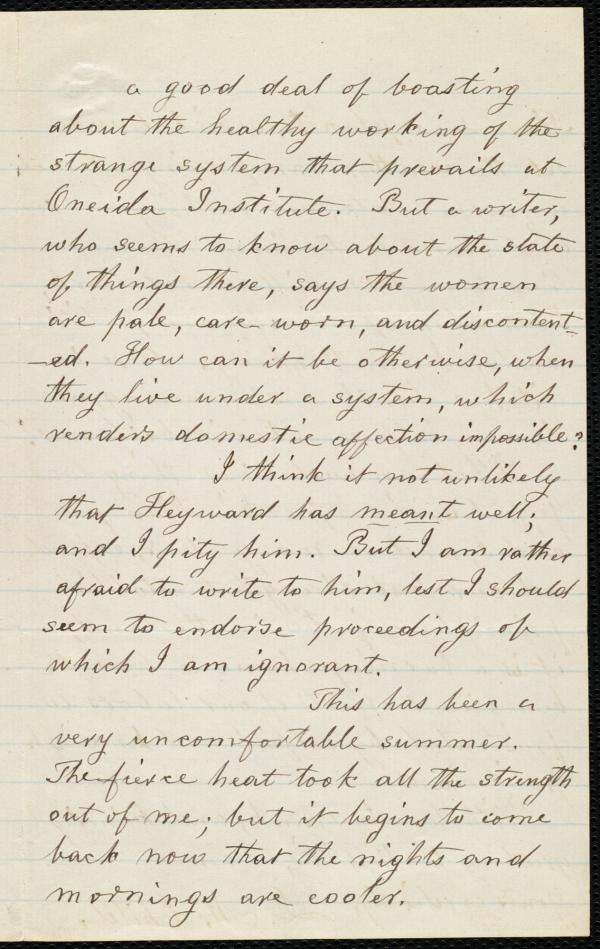 a good deal of boasting
about the healthy working of the
strange system that prevails at
Oneida Institute. But a writer,
who seems to know about the state
of things there, says the women
are pale, care-worn, and discontent-
-ed. How can it be otherwise, when
they live under a system, which
renders domestic affection impossible?
I think it not unlikely
that Heyward has meant well;
and I pity him. But I am rather
afraid to write to him, lest I should
seem to endorse proceedings of
which I am ignorant.
This has been a
very uncomfortable summer.
The fierce heat took all the strength
out of me; but it begins to come
back now that the nights and
mornings are cooler.